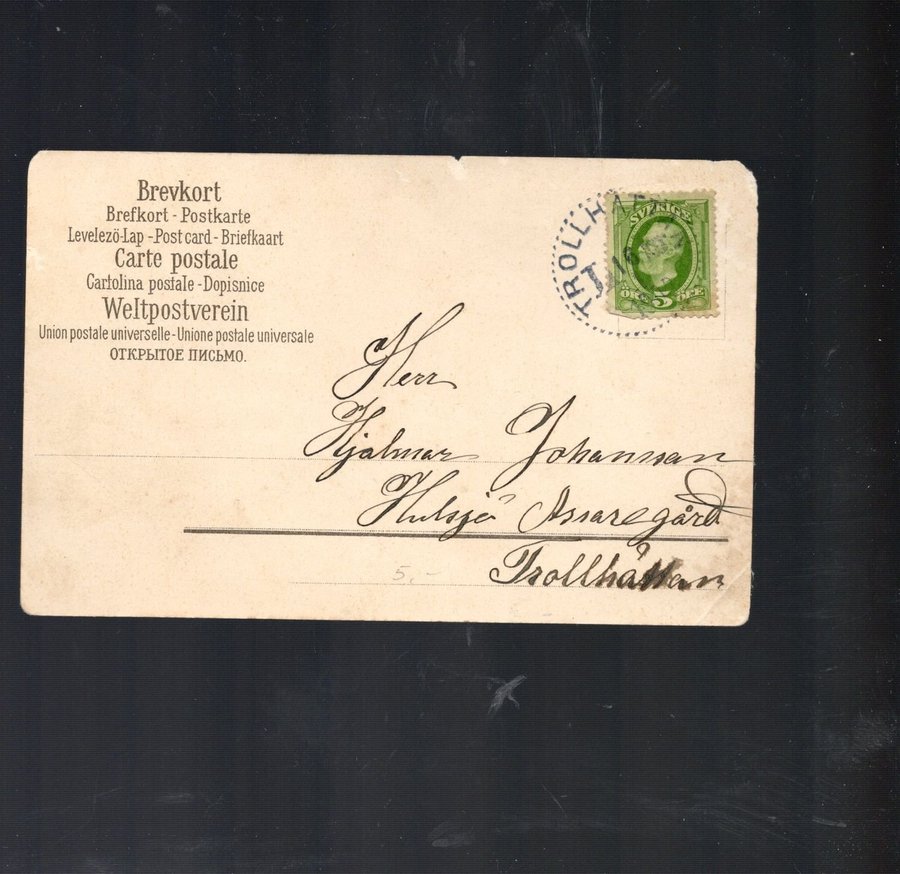 Brevkort
Brefkort - Postkarte
Levelezö-Lap - Post card - Briefkaart
Carte postale
Cartolina postale - Dopisnice
Weltpostverein
Union postale universelle - Unione postale universale
ОТКРЫТОЕ ПИСЬМО.
TROLLHÄT
16
SVERIGE
ÖRE 5 ÖRE
Herr
Hjalmar Johansson
Hulsjö Assaregård
Trollhättan
5.-